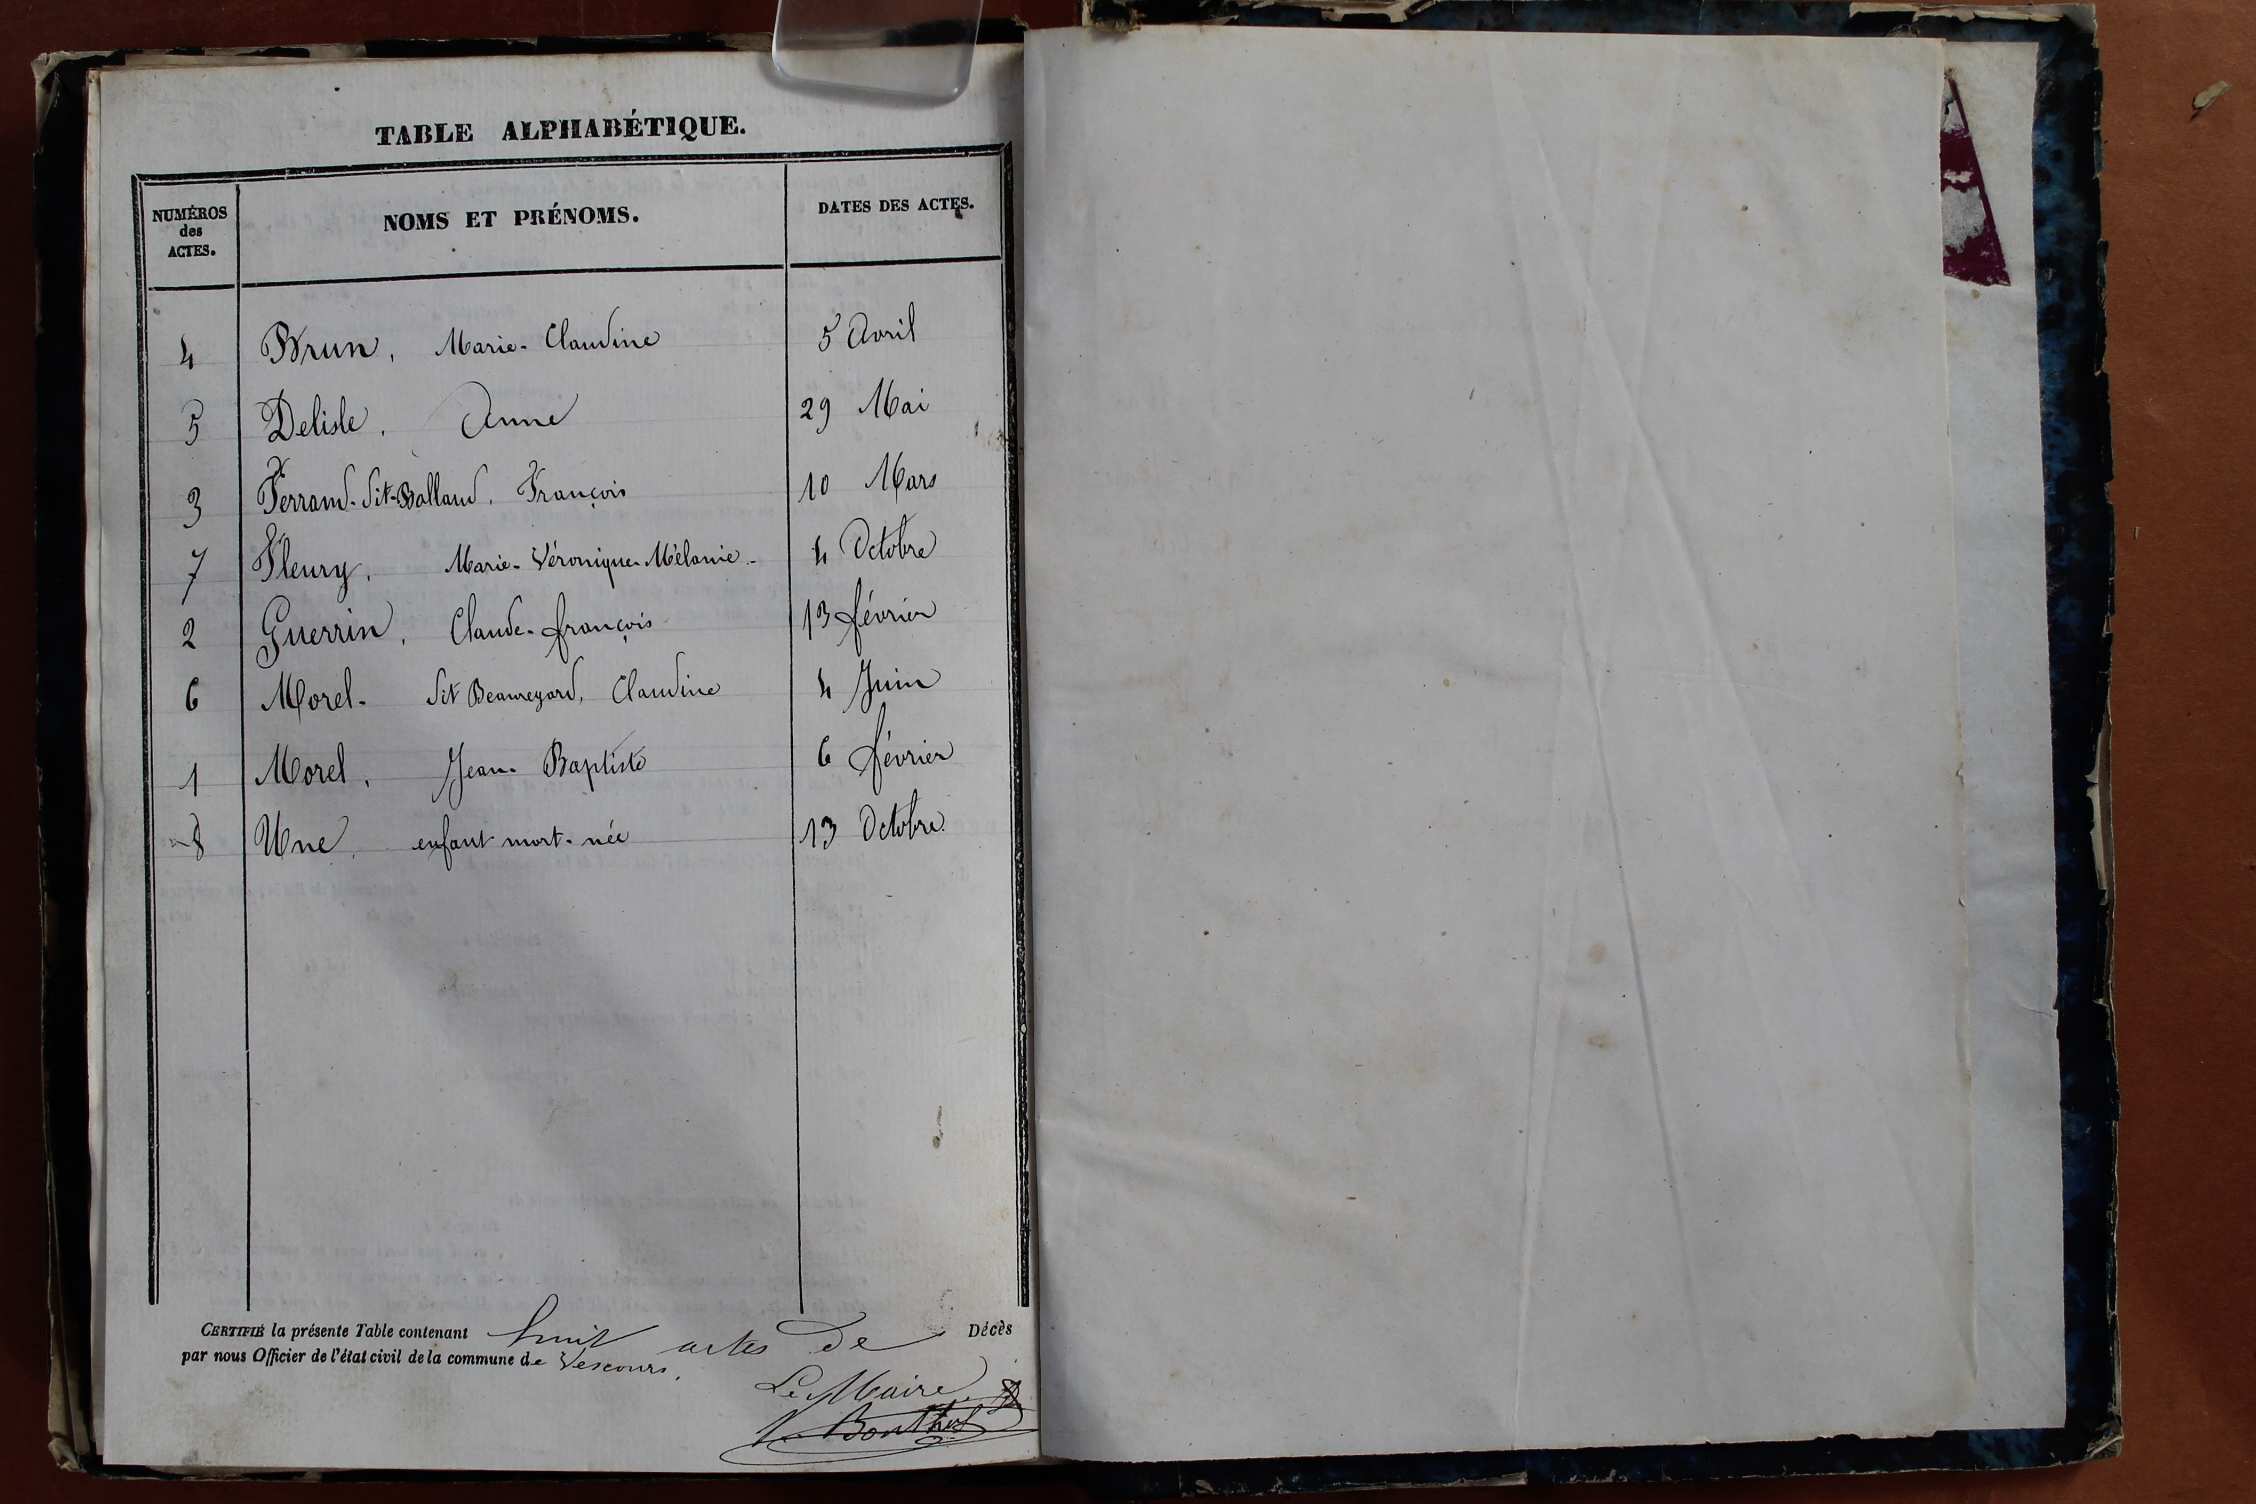 TABLE ALPHABÉTIQUE.
NUMÉROS des ACTES. NOMS ET PRÉNOMS. DATES DES ACTES.
4 Brun, Marie-Claudine 5 Avril
5 Delisle, Anne 29 Mai
3 Ferrand-dit-Balland, François 10 Mars
7 Fleury, Marie-Véronique-Mélanie- 4 Octobre
2 Guerrin, Claude-françois 13 février
6 Morel- dit Beauregard, Claudine 4 Juin
1 Morel, Jean-Baptiste 6 février
8 Une enfant mort-née 13 Octobre
CERTIFIÉ la présente Table contenant huit actes de Décès
par nous Officier de l'état civil de la commune de Vescours.
Le Maire